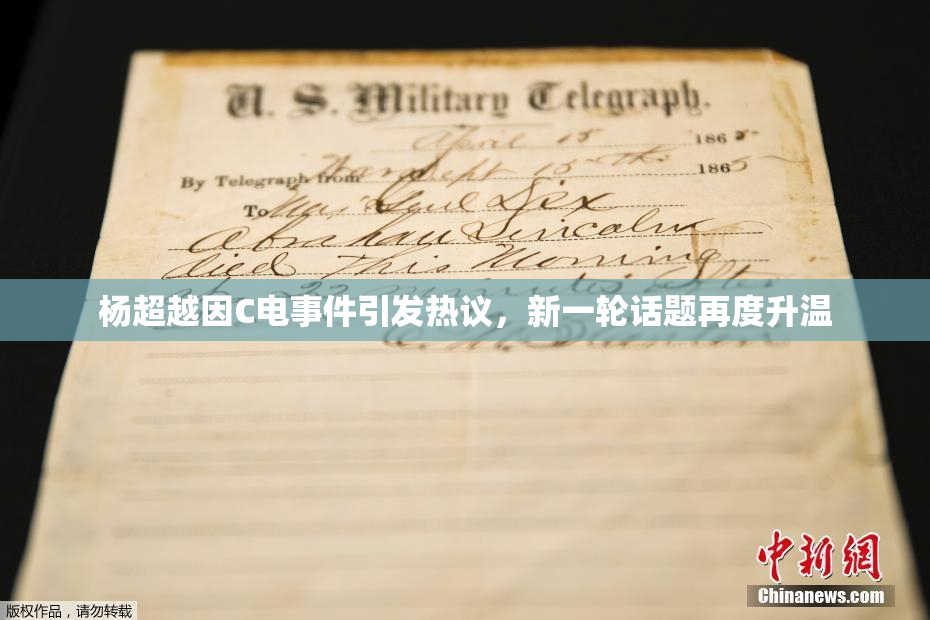 U. S. Military Telegraph.
April 15 1865
By Telegraph from War Dept 15th 1865
To Maj Genl Dix
Abraham Lincoln
died This Morning
at 22 minutes after
杨超越因C电事件引发热议，新一轮话题再度升温
E. M. Stanton
中新网
Chinanews.com
版权作品，请勿转载